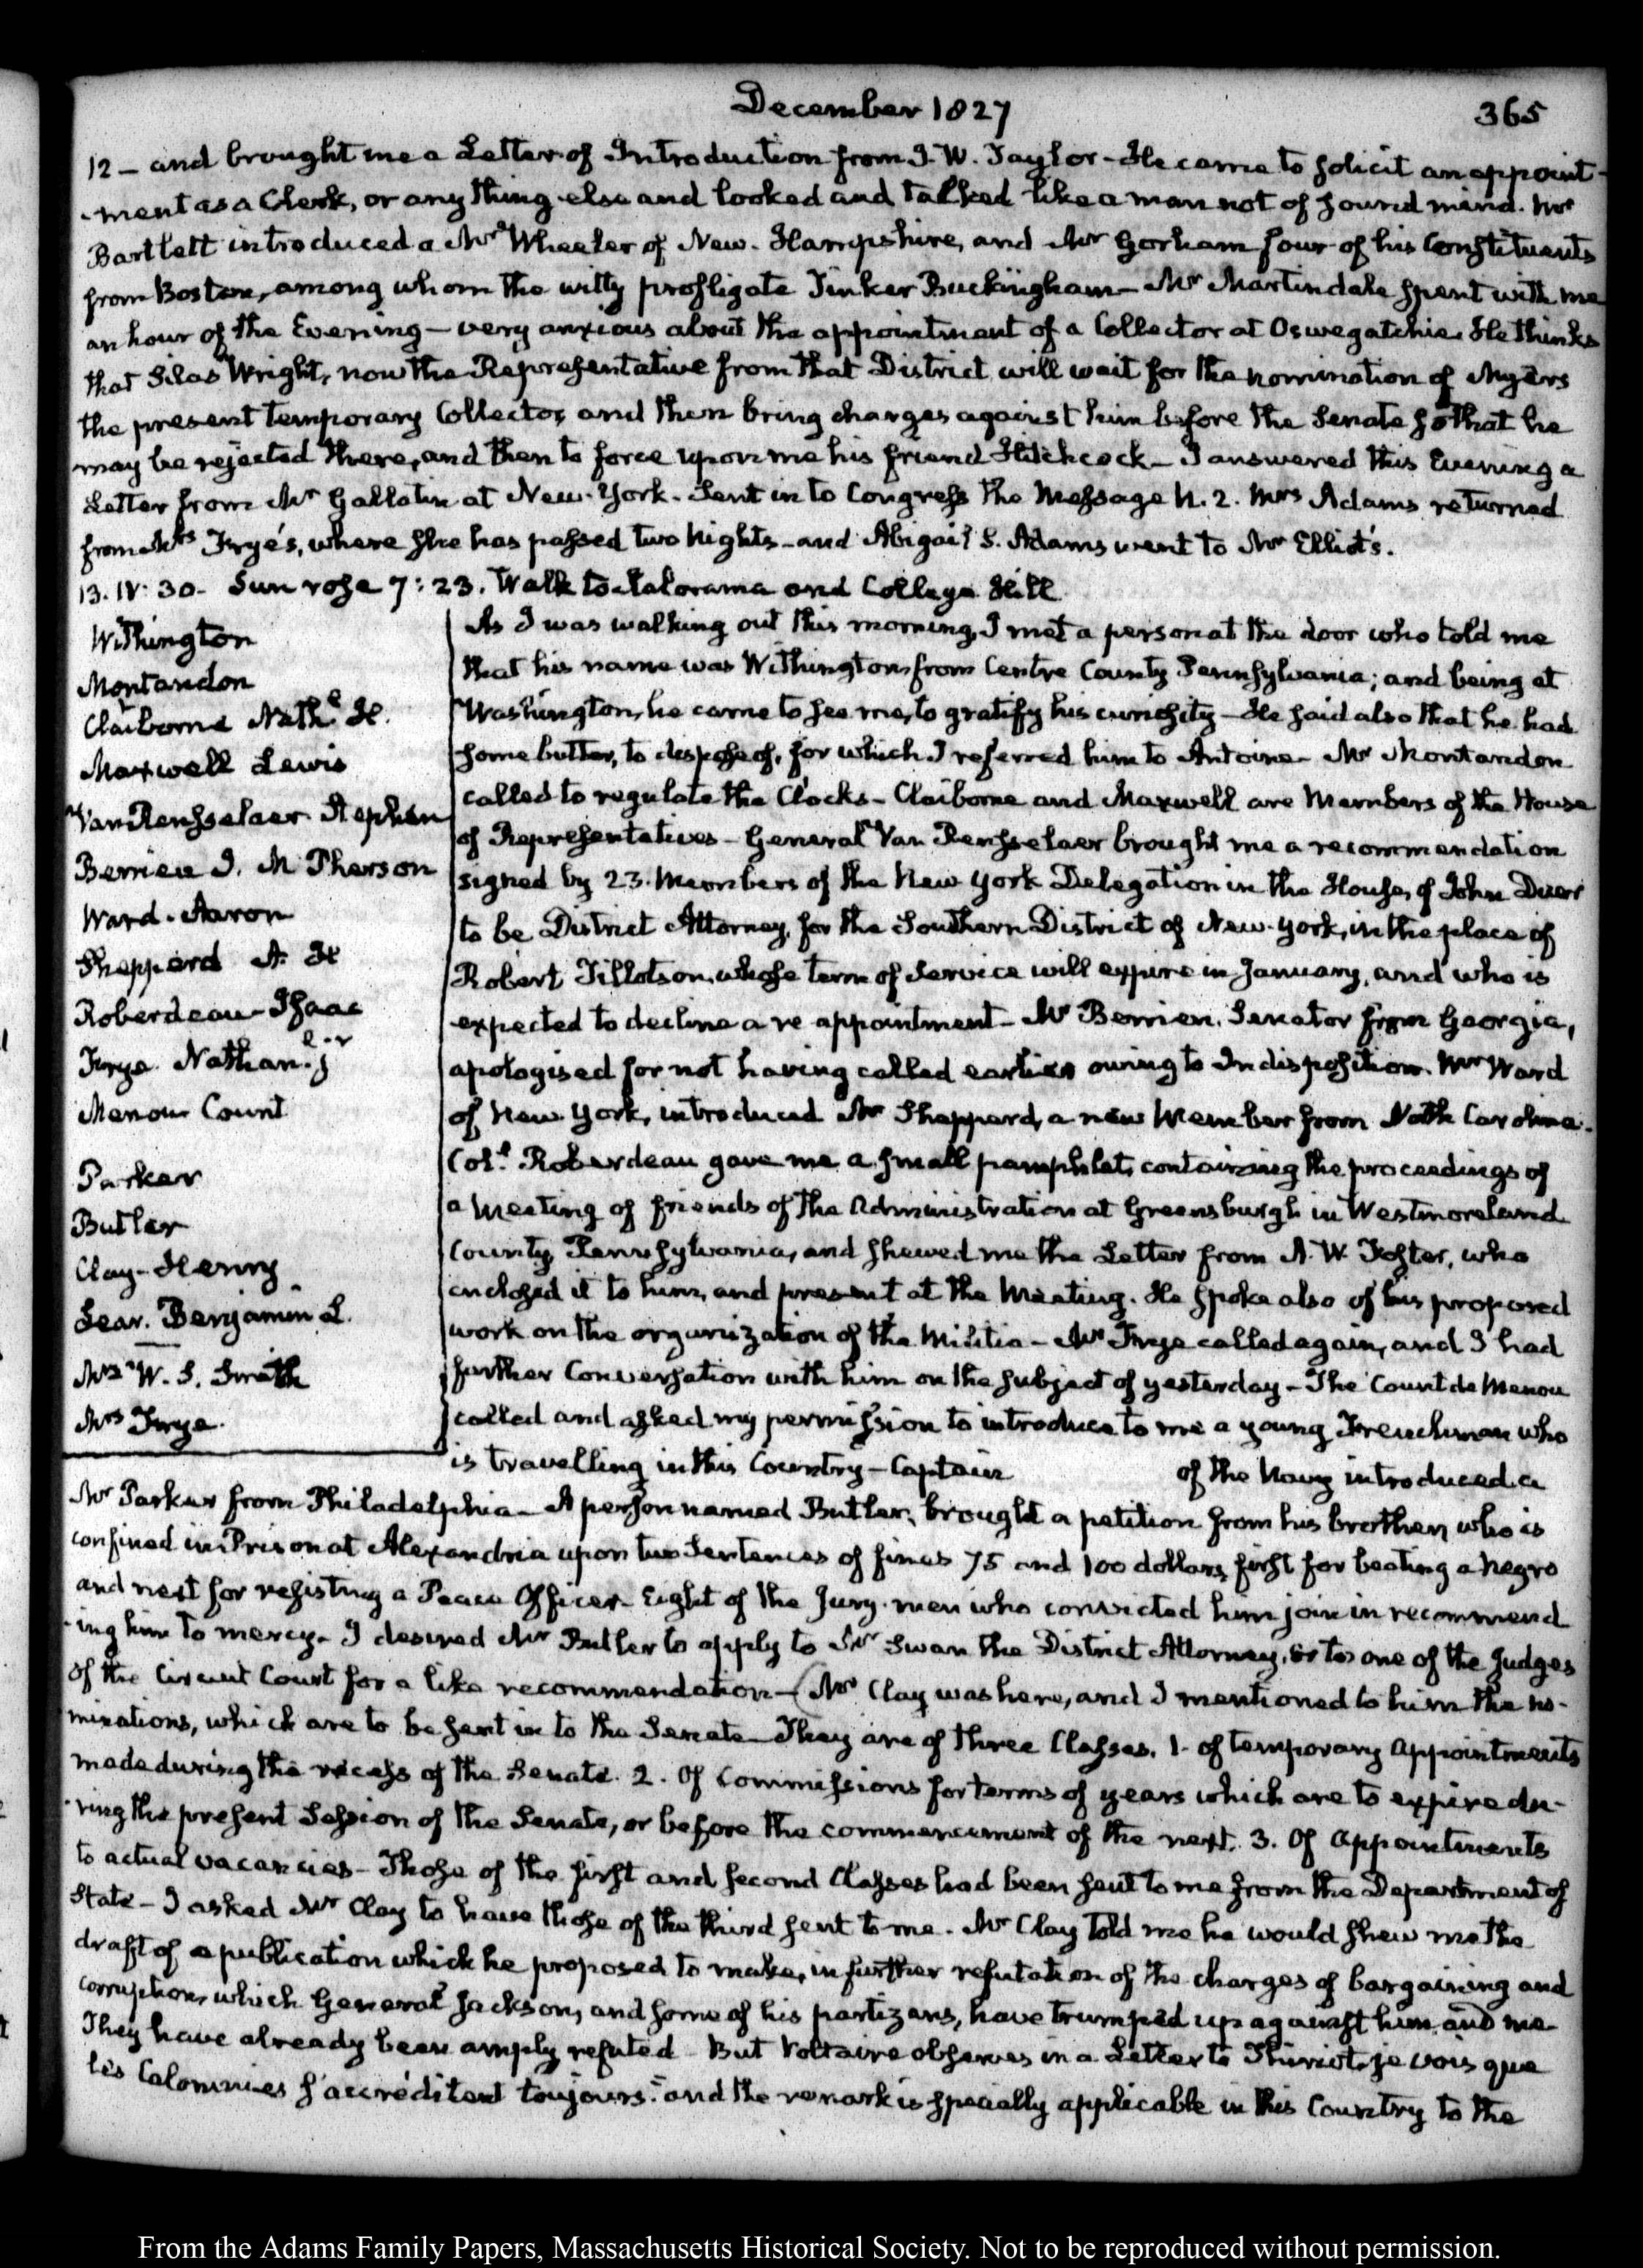 December 1827
365
12 – and brought me a Letter of Introduction from J. W. Taylor – He came to solicit an appoint-
-ment as a Clerk, or any thing else and looked and talked like a man not of sound mind. Mr
Bartlett introduced a Mr Wheeler of New-Hampshire, and Mr Gorham four of his Constituents
from Boston, among whom the witty profligate Tinker Buckingham – Mr Martindale spent with me
an hour of the Evening – very anxious about the appointment of a Collector at Oswegatchie. He thinks
that Silas Wright, now the Representative from that District will wait for the nomination of Myers
the present temporary Collector, and then bring charges against him before the Senate so that he
may be rejected there, and then to force upon me his friend Hitchcock – I answered this Evening a
Letter from Mr Gallatin at New-York. Sent in to Congress the Message N. 2. Mrs Adams returned
from Mrs Frye's, where she has passed two Nights – and Abigail S. Adams went to Mr Elliot's.
13. IV: 30. Sun rose 7:23. Walk to Kalorama and College Hill
Withington
Montandon
Claiborne Nathl H.
Maxwell Lewis
Van Rensselaer Stephen
Berrien J. McPherson
Ward. Aaron
Sheppard A. H
Roberdeau – Isaac
Frye Nathanl jr
Menou Count
Parker
Butler
Clay – Henry
Lear. Benjamin L.
Mrs W. S. Smith
Mrs Frye.
As I was walking out this morning, I met a person at the door who told me
that his name was Withington from Centre County Pennsylvania; and being at
Washington, he came to see me, to gratify his curiosity – He said also that he had
some butter, to dispose of, for which I referred him to Antoine – Mr Montandon
called to regulate the Clocks – Claiborne and Maxwell are Members of the House
of Representatives – General Van Rensselaer brought me a recommendation
signed by 23. Members of the New York Delegation in the House, of John Duer
to be District Attorney, for the Southern District of New-York, in the place of
Robert Tillotson, whose term of Service will expire in January, and who is
expected to decline a re appointment – Mr Berrien. Senator from Georgia,
apologised for not having called earlier owing to Indisposition. Mr Ward
of New York, introduced Mr Sheppard, a new Member from North Carolina.
Coll. Roberdeau gave me a small pamphlet, containing the proceedings of
a Meeting of friends of the Administration at Greensburgh in Westmoreland
County Pennsylvania, and shewed me the Letter from A. W. Foster, who
enclosed it to him, and present at the Meeting. He spoke also of his proposed
work on the organization of the Militia – Mr Frye called again, and I had
further Conversation with him on the subject of yesterday – The Count de Menou
called and asked my permission to introduce to me a young Frenchman who
is travelling in this Country – Captain of the Navy introduced a
Mr Parker from Philadelphia – A person named Butler, brought a petition from his brother, who is
confined in Prison at Alexandria upon two Sentences of fines 75 and 100 dollars, first for beating a Negro
and next for resisting a Peace Officer – Eight of the Jury-men who convicted him join in recommend
-ing him to mercy – I desired Mr Butler to apply to Mr Swan the District Attorney, or to one of the Judges
of the Circuit Court for a like recommendation – (Mr Clay was here, and I mentioned to him the no-
minations, which are to be sent in to the Senate – They are of three Classes. 1. of temporary Appointments
made during the recess of the Senate. 2. Of Commissions for terms of years which are to expire du-
-ring the present Session of the Senate, or before the commencement of the next. 3. Of Appointments
to actual vacancies – Those of the first and second Classes had been sent to me from the Department of
State – I asked Mr Clay to have those of the third sent to me. Mr Clay told me he would shew me the
draft of a publication which he proposed to make, in further refutation of the charges of bargaining and
corruption, which General Jackson, and some of his partizans, have trumped up against him and me
They have already been amply refuted But Voltaire observes in a Letter to Thiriot "je vois que
les Calomnies s'accréditent toujours." and the remark is specially applicable in this Country to the
From the Adams Family Papers, Massachusetts Historical Society. Not to be reproduced without permission.